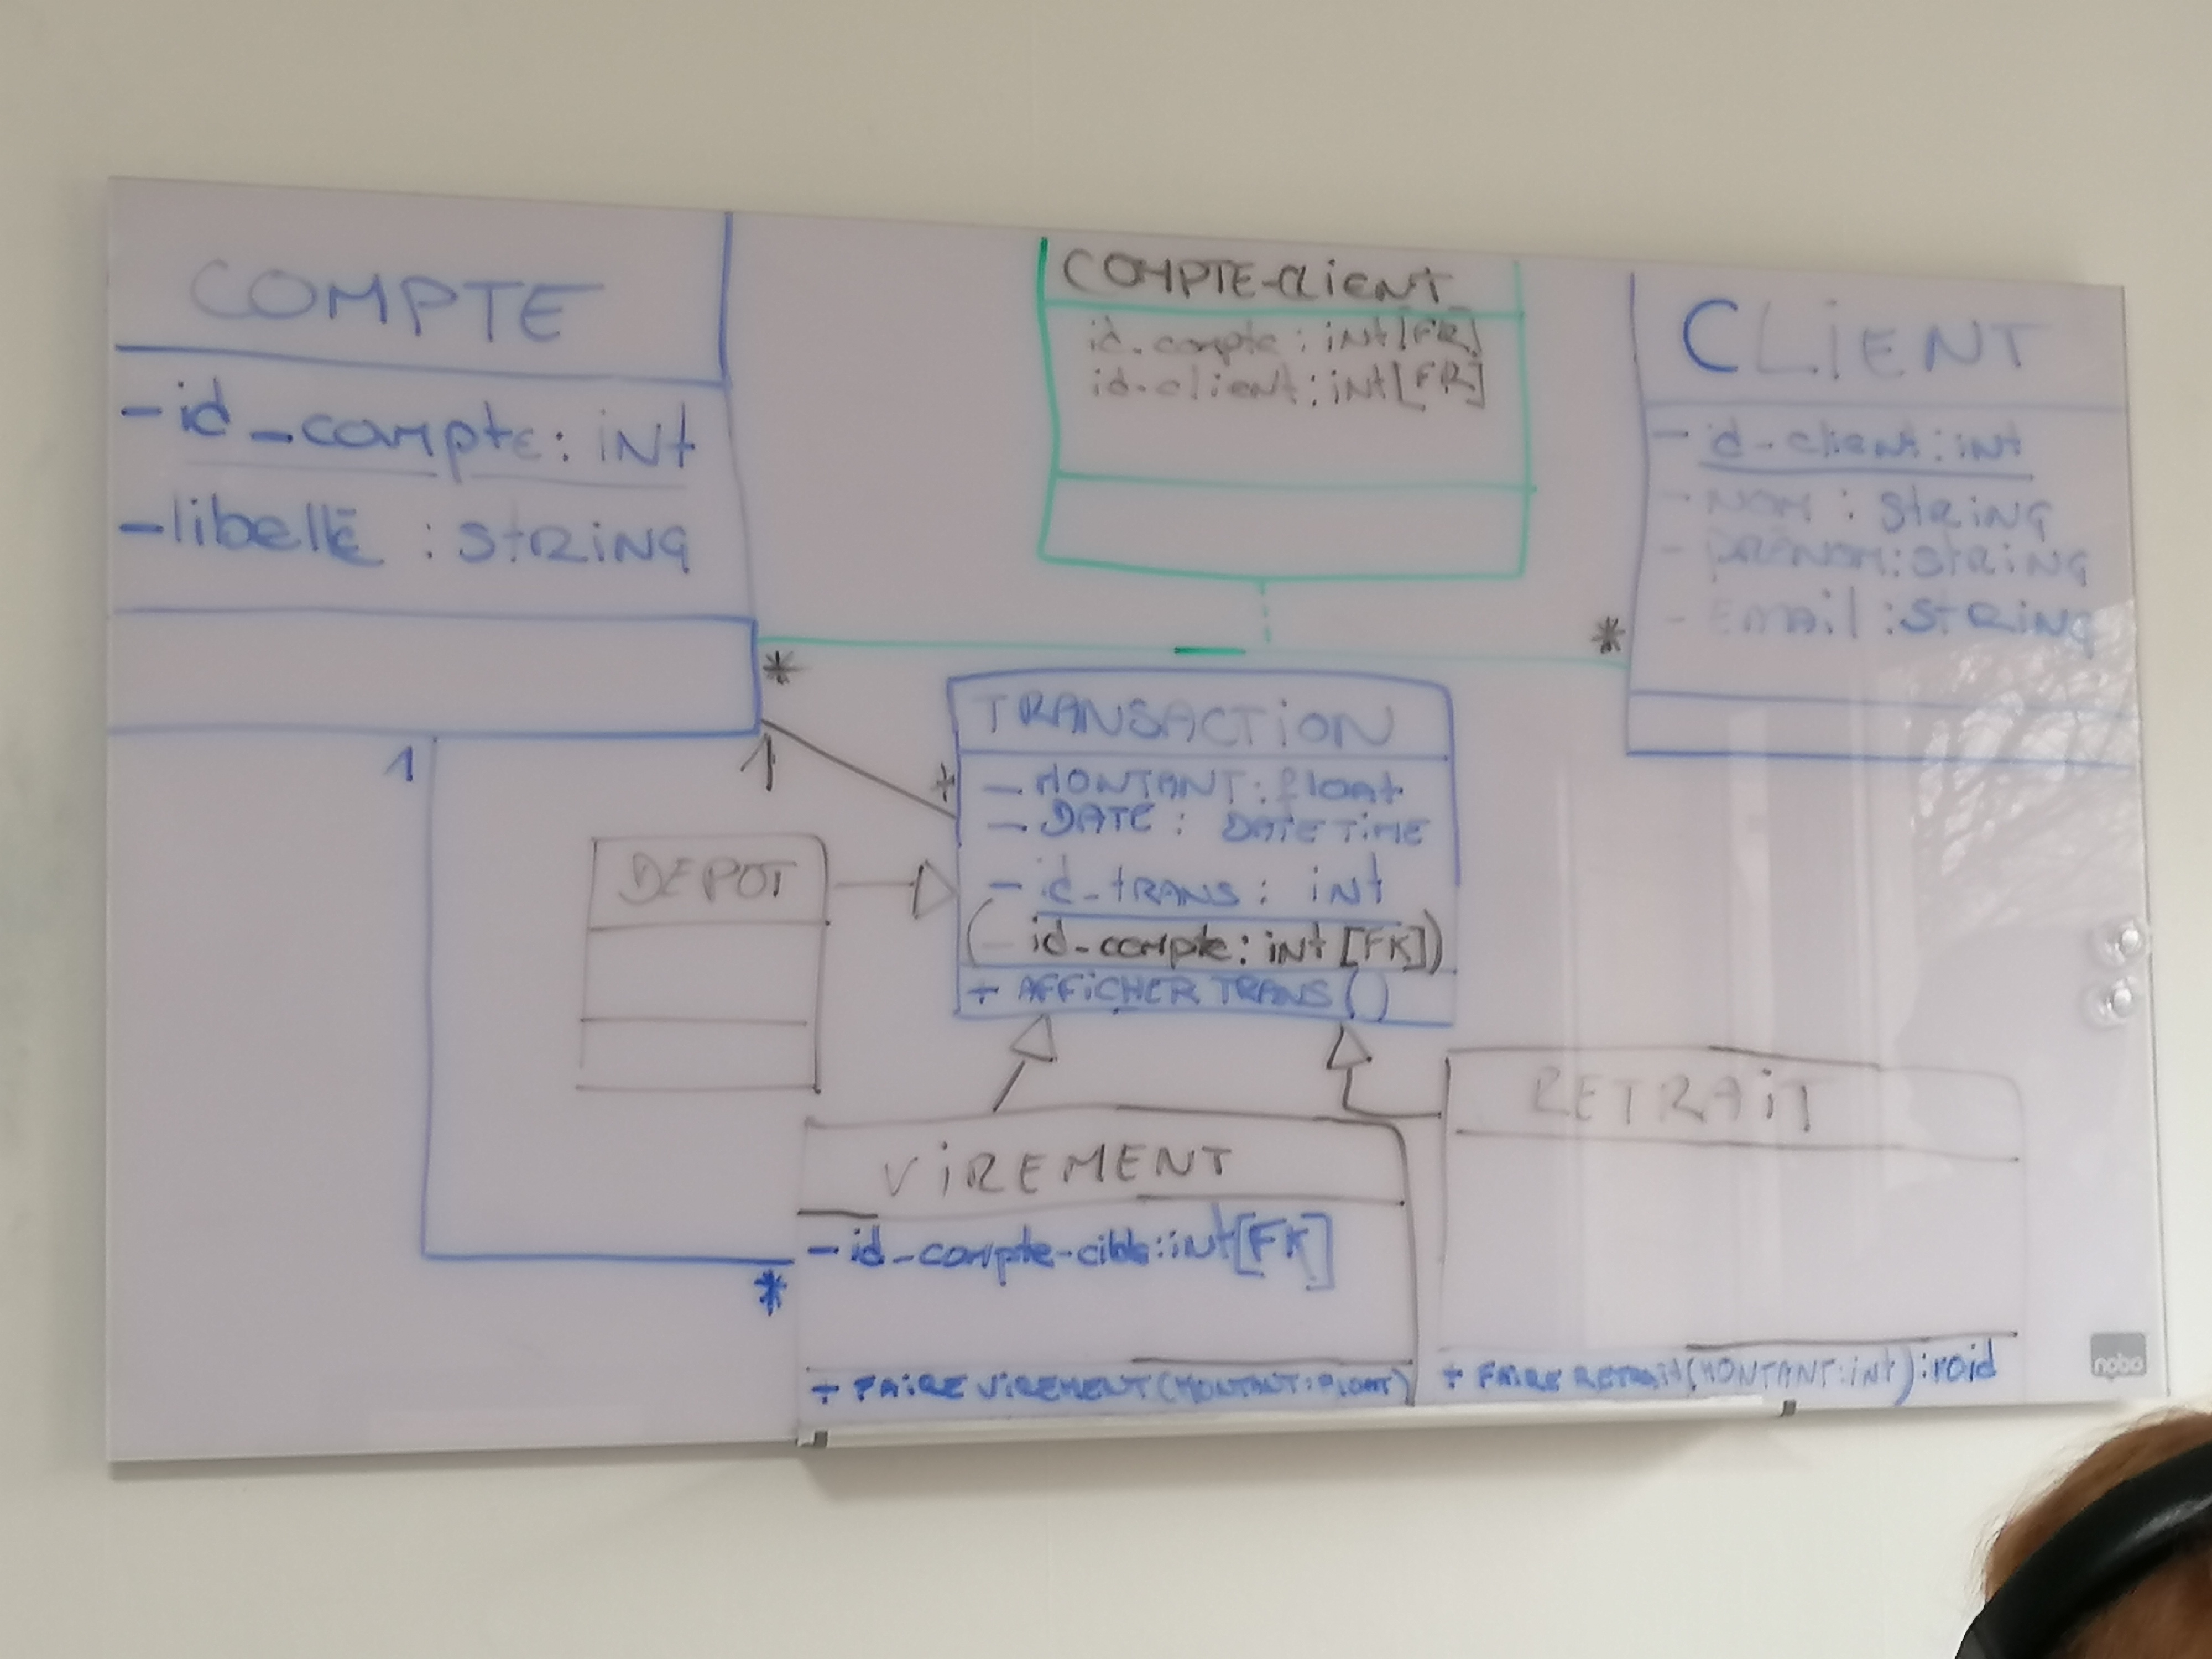 COMPTE
-id_compte: int
-libellé : string
COMPTE-CLIENT
id_compte: int[FK]
id_client: int[FK]
CLIENT
- id_client: int
- NOM : string
- PRÉNOM: string
- EMAIL : string
*
*
1
1
*
TRANSACTION
- MONTANT: float
- DATE : DATETIME
- id_TRANS : int
(- id_compte: int [FK])
+ AFFICHER TRANS()
DEPOT
VIREMENT
- id_compte-cible: int[FK]
+ FAIRE VIREMENT (MONTANT: FLOAT)
*
RETRAIT
+ FAIRE RETRAIT(MONTANT: int) : void
nobo